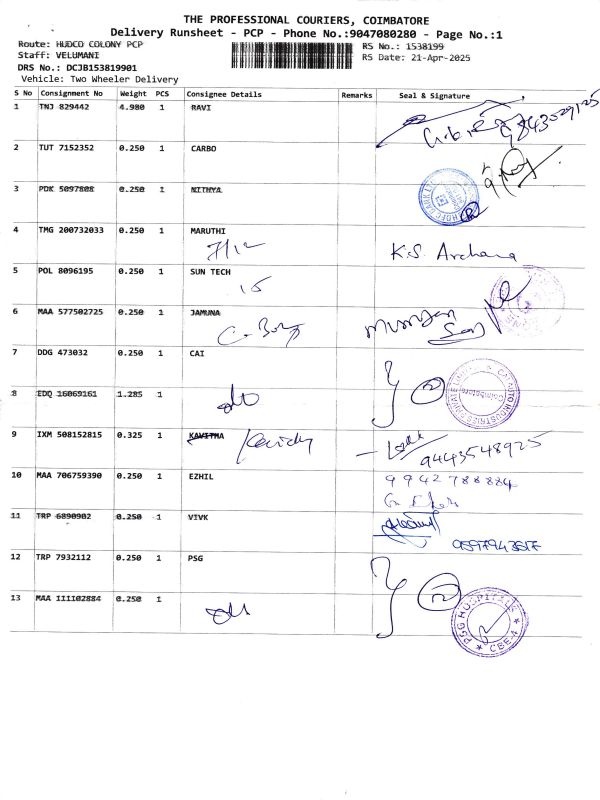 THE PROFESSIONAL COURIERS, COIMBATORE
Delivery Runsheet - PCP - Phone No.:9047080280 - Page No.:1
Route: HUDCO COLONY PCP
RS No.: 1538199
Staff: VELUMANI
RS Date: 21-Apr-2025
DRS No.: DCJB153819901
Vehicle: Two Wheeler Delivery
S No Consignment No Weight PCS Consignee Details Remarks Seal & Signature
1 TNJ 829442 4.980 1 RAVI
2 TUT 7152352 0.250 1 CARBO
3 PDK 5097808 0.250 1 NITHYA
4 TMG 200732033 0.250 1 MARUTHI
7/12 K.S. Archana
5 POL 8096195 0.250 1 SUN TECH
15
6 MAA 577502725 0.250 1 JAMUNA
Murugan
7 DDG 473032 0.250 1 CAI
8 EDQ 16069161 1.285 1
9 IXM 508152815 0.325 1 KAVITHA
9443548925
10 MAA 706759390 0.250 1 EZHIL 9942788884
11 TRP 6890902 0.250 1 VIVK
12 TRP 7932112 0.250 1 PSG
13 MAA 111102884 0.250 1
PSG HOSPITALS
CBE-4